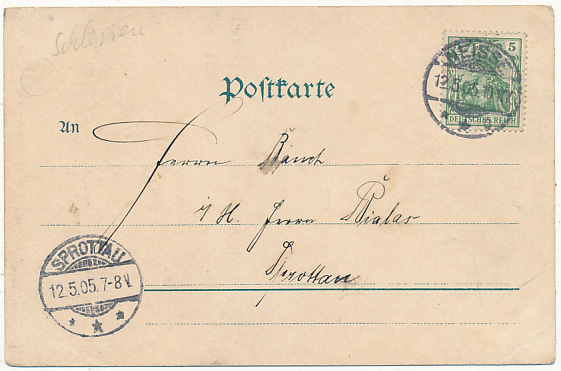 Schlesien
NEISSE
5
12.5.05
DEUTSCHES REICH
Postkarte
An
Herrn
i/H. Herrn Bialas
Sprottau
SPROTTAU
12.5.05.7-8V.
* * *